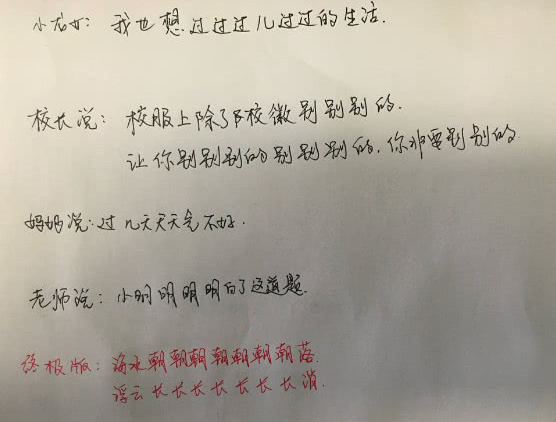 小龙女: 我也想过过过儿过过的生活.
校长说: 校服上除了校徽别别别的.
让你别别别的别别别的, 你非要别别的.
妈妈说: 过几天天天气不好.
老师说: 小明明明明白了这道题.
终极版: 海水朝朝朝朝朝朝朝落.
浮云长长长长长长长消.